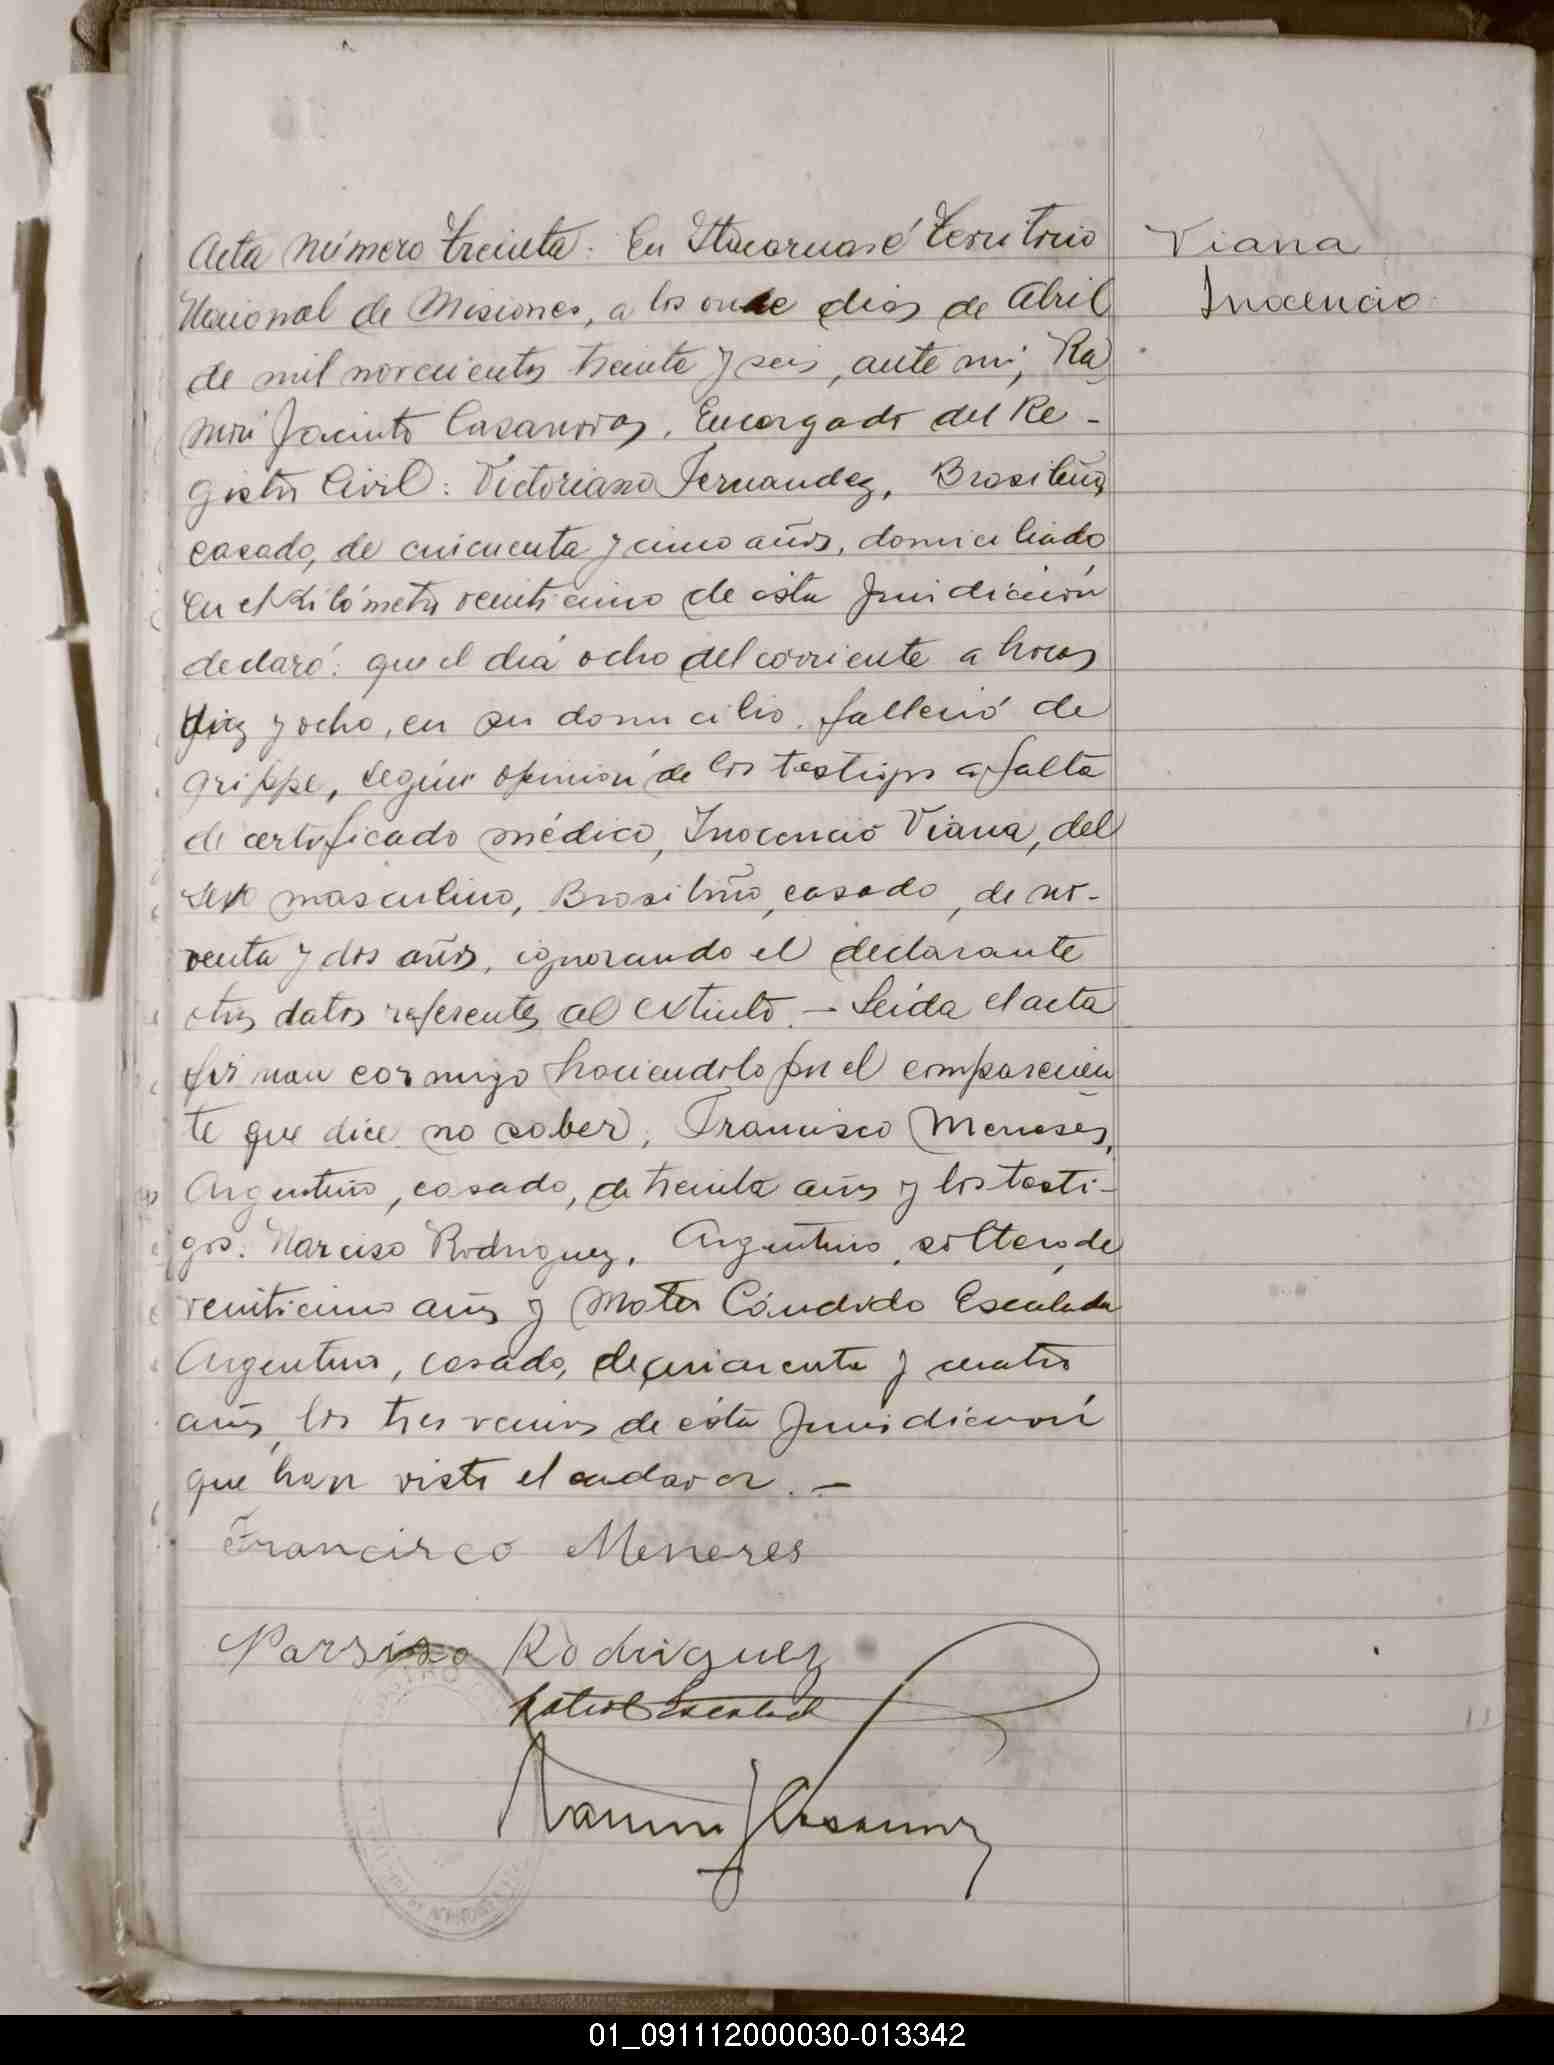 Acta Número treinta: En Itacaruaré Territorio
Nacional de Misiones, a los once dias de Abril
de mil novecientos treinta y seis, ante mi, Ra
miro Jacinto Casanovas, Encargado del Re-
gistro Civil: Victoriano Fernandez, Brasileño,
casado, de cincuenta y cinco años, domiciliado
en el Kilómetro veinticinco de ésta Jurisdicción
declaró: que el diá ocho del corriente a horas
diez y ocho, en su domicilio, falleció de
grippe, según opinión de los testigos a falta
de certificado médico, Inocencio Viana, del
sexo masculino, Brasileño, casado, de no-
venta y dos años, ignorando el declarante
otros datos referentes al extinto. - Leida el acta
firman conmigo haciendolo por el comparecien
te que dice no saber, Francisco Meneses,
Argentino, casado, de treinta años y los testi-
gos: Narciso Rodriguez, Argentino, soltero, de
veinticinco años y Cándido Escalada
Argentino, casado, de cincuenta y cuatro
años, los tres vecinos de ésta Jurisdicción
que han visto el cadaver. -
Viana
Inocencio
Francisco Meneses
Narsiso Rodriguez
01_091112000030-013342